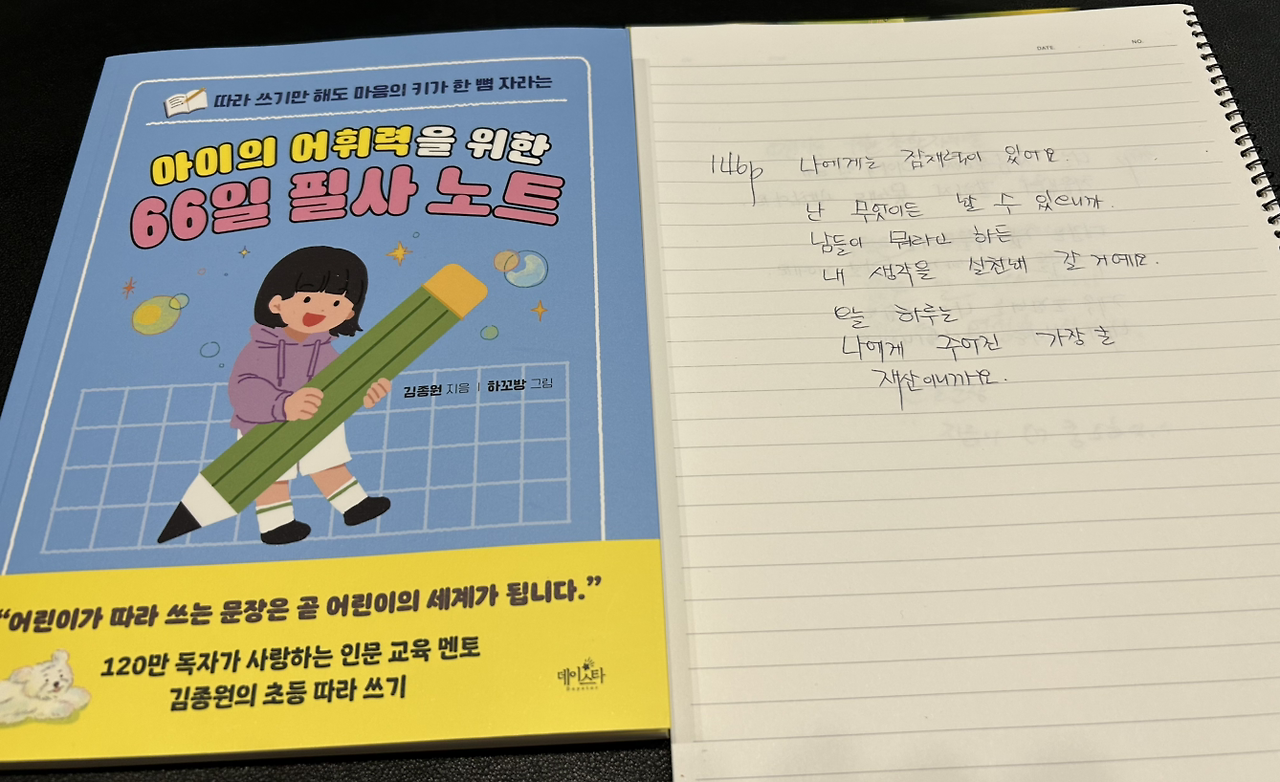 따라 쓰기만 해도 마음의 키가 한 뼘 자라는
아이의 어휘력을 위한
66일 필사 노트
김종원 지음 | 하꼬방 그림
“어린이가 따라 쓰는 문장은 곧 어린이의 세계가 됩니다.”
120만 독자가 사랑하는 인문 교육 멘토
김종원의 초등 따라 쓰기
데이스타
Daystar
DATE. NO.
146p 나에게는 잠재력이 있어요.
난 무엇이든 할 수 있으니까.
남들이 뭐라고 하든
내 생각을 실천해 갈 거예요.
오늘 하루는
나에게 주어진 가장 큰
재산이니까요.